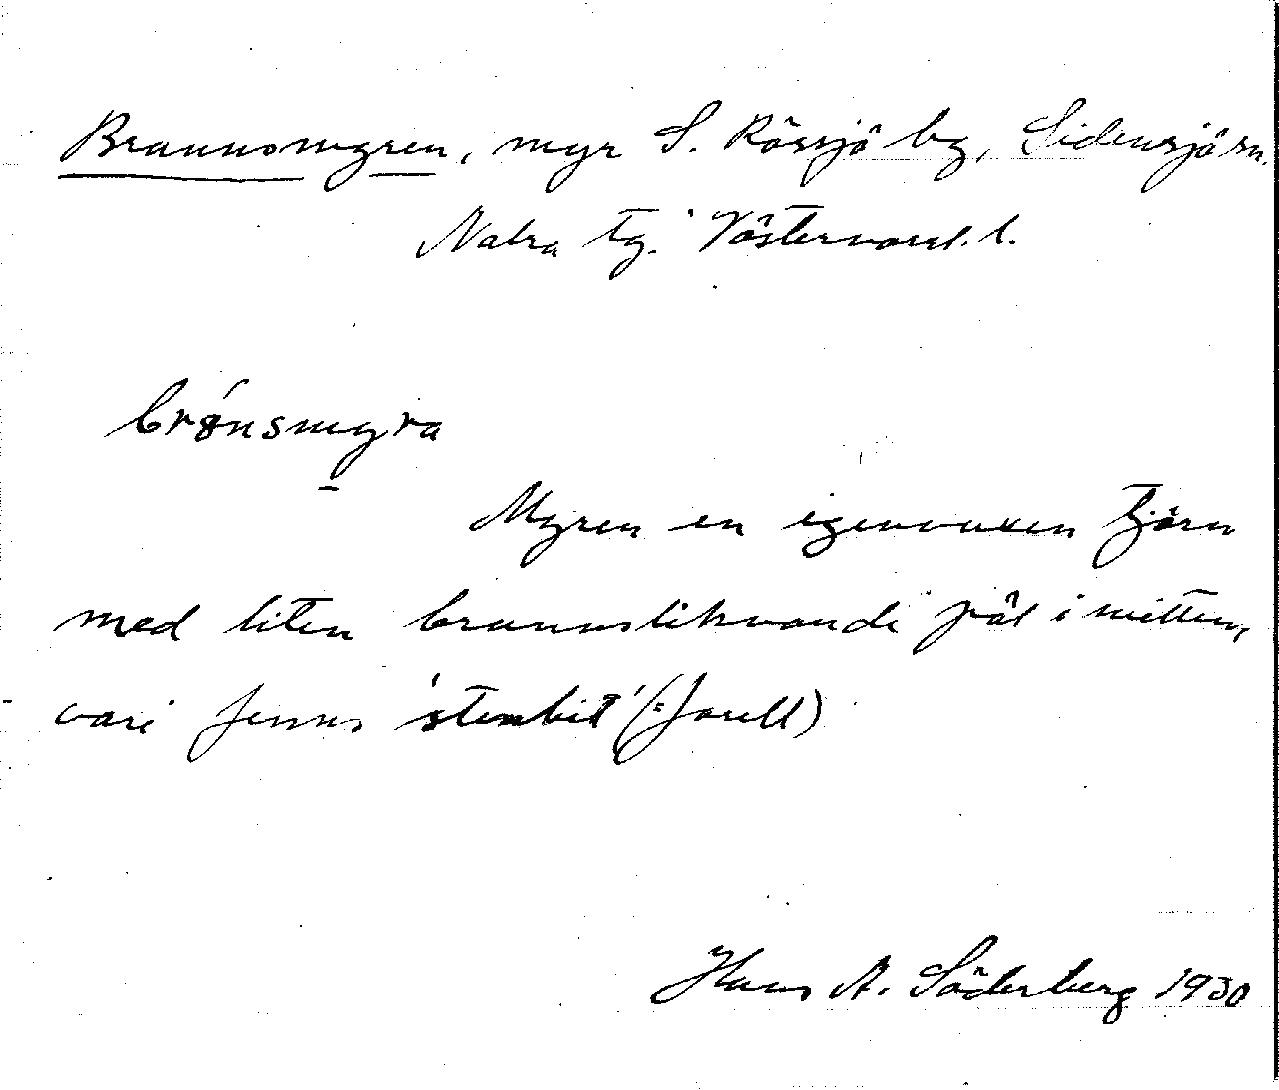 Brunnsmyren, myr S. Rössjö by, Sidensjö sn.
Nätra tg. Västernorrl. l.
brǿnsmyra
Myren en igenvuxen tjärn
med liten brunnsliknande pöl i mitten,
vari finns 'stenbit' (
Hans A. Söderberg 1930